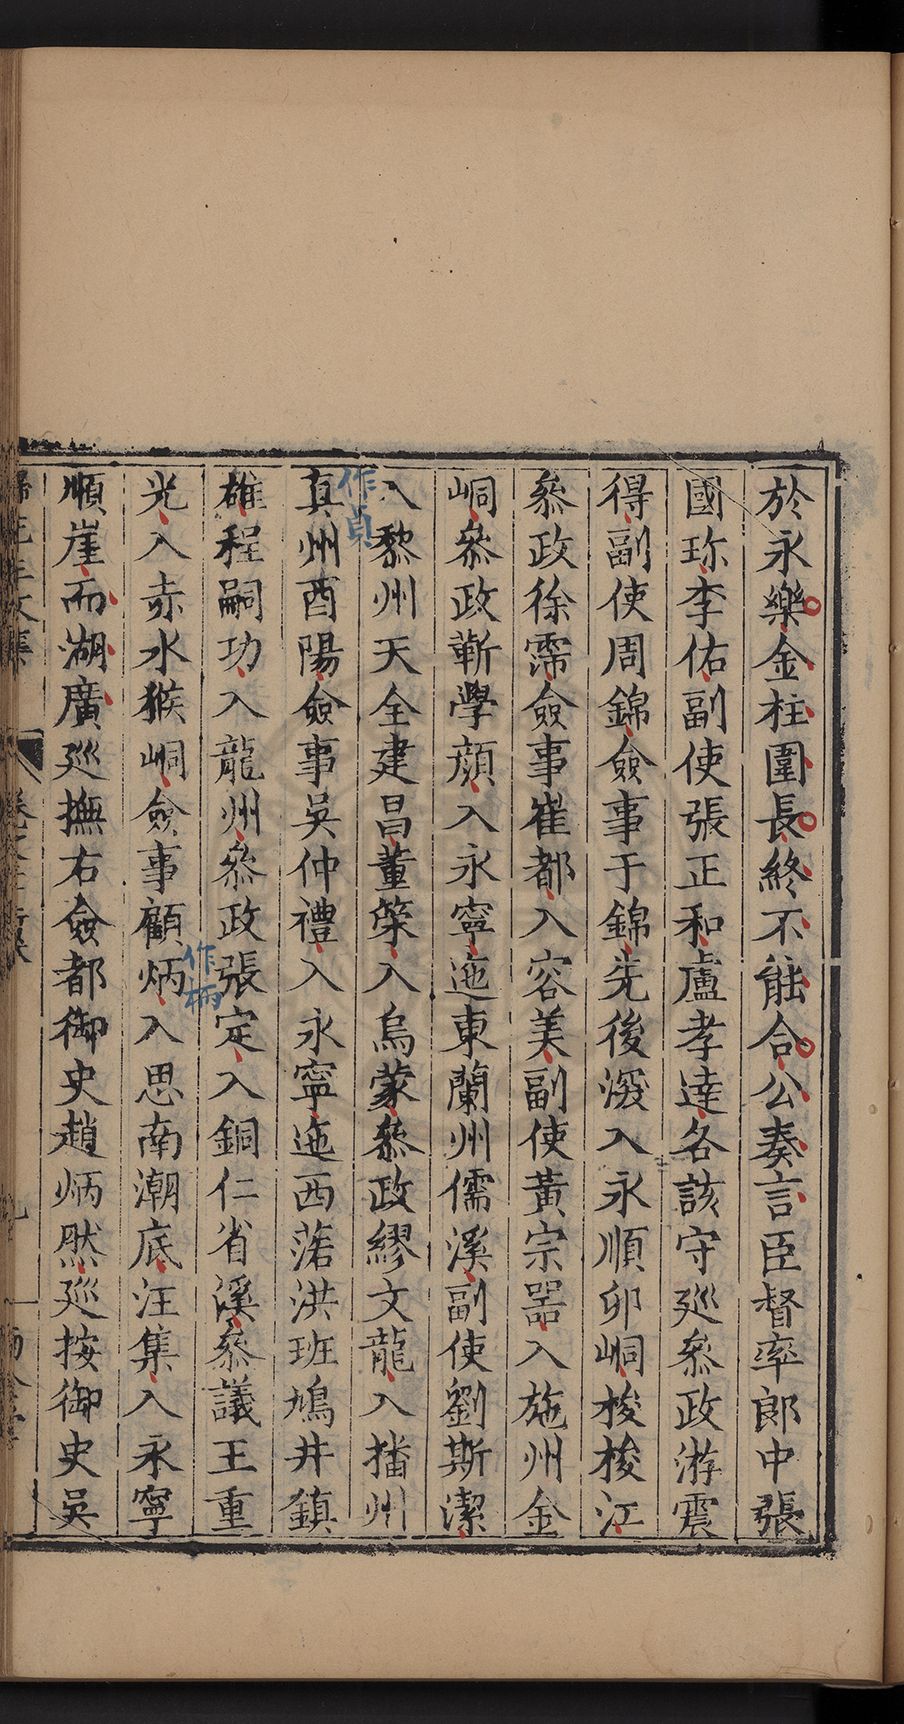 於永樂金柱圍長終不能合公奏言臣督率郎中張
國珎李佑副使張正和盧孝達各該守廵叅政游震
得副使周錦僉事于錦先後深入永順卯峒梭梭江
叅政徐霈僉事崔都入容美副使黃宗噐入施州金
峒叅政靳學顏入永寧迤東蘭州儒溪副使劉斯潔
入黎州天全建昌董䇿入烏蒙叅政繆文龍入播州
真州酉陽僉事吳仲禮入永寧迤西落洪班鳩井鎮
作貞
雄程嗣功入龍州叅政張定入銅仁省溪叅議王重
光入赤水猴峒僉事顧炳入思南潮底汪集入永寧
作柄
順崖而湖廣廵撫右僉都御史趙炳然廵按御史吳